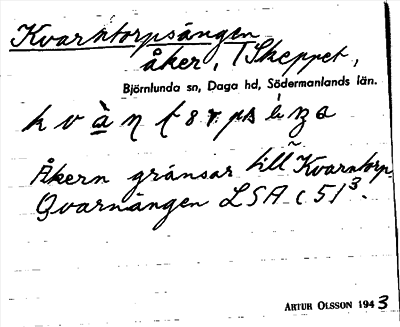 Kvarntorpsängen
åker, Skeppet,
Björnlunda sn, Daga hd, Södermanlands län.
Åkern gränsar till Kvarntorp.
Qvarnängen LSA C 51³.
ARTUR OLSSON 1943